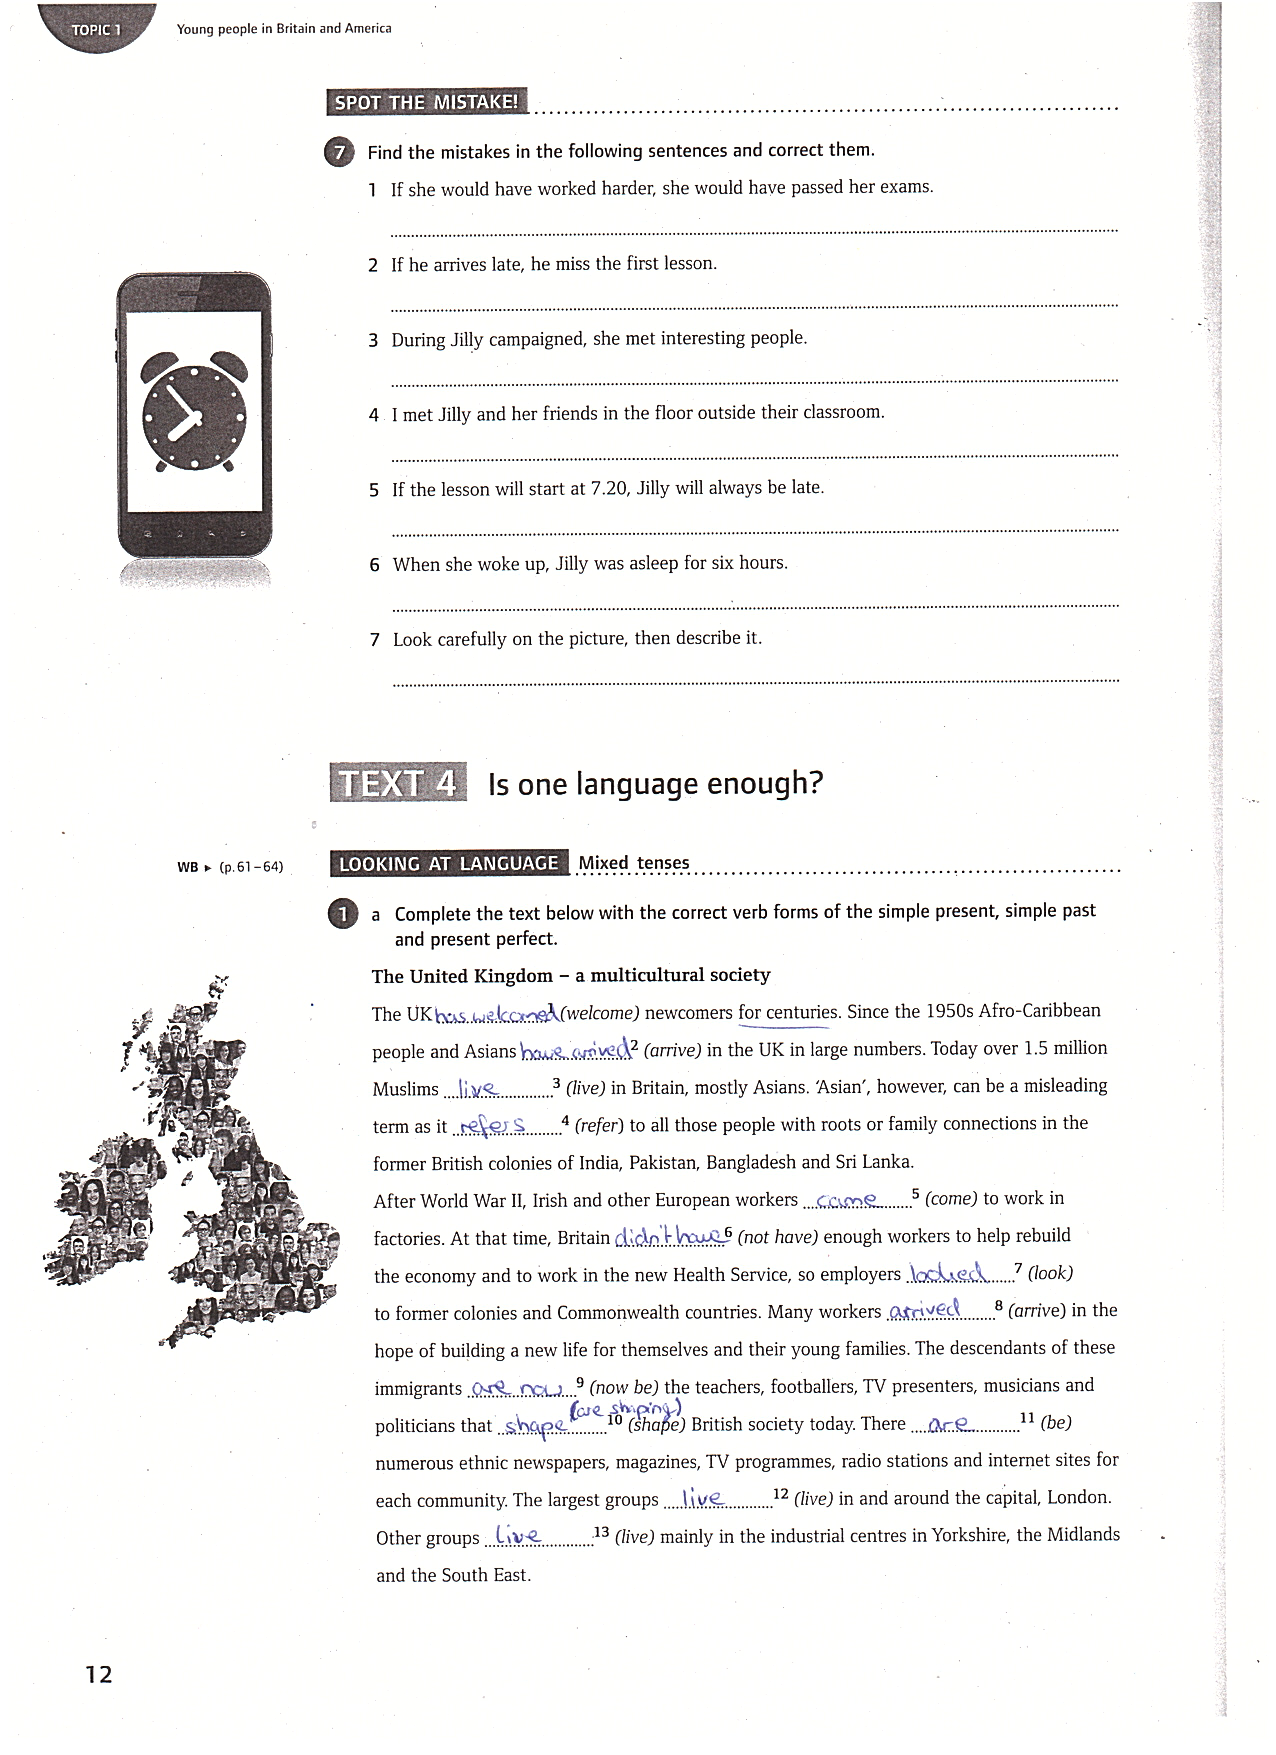 TOPIC 1
Young people in Britain and America
SPOT THE MISTAKE!
7 Find the mistakes in the following sentences and correct them.
1 If she would have worked harder, she would have passed her exams.
2 If he arrives late, he miss the first lesson.
3 During Jilly campaigned, she met interesting people.
4 I met Jilly and her friends in the floor outside their classroom.
5 If the lesson will start at 7.20, Jilly will always be late.
6 When she woke up, Jilly was asleep for six hours.
7 Look carefully on the picture, then describe it.
TEXT 4 Is one language enough?
WB ▸ (p.61–64)
LOOKING AT LANGUAGE Mixed tenses
1 a Complete the text below with the correct verb forms of the simple present, simple past
and present perfect.
The United Kingdom – a multicultural society
The UK has welcomed 1 (welcome) newcomers for centuries. Since the 1950s Afro-Caribbean
people and Asians have arrived 2 (arrive) in the UK in large numbers. Today over 1.5 million
Muslims live 3 (live) in Britain, mostly Asians. ‘Asian’, however, can be a misleading
term as it refers 4 (refer) to all those people with roots or family connections in the
former British colonies of India, Pakistan, Bangladesh and Sri Lanka.
After World War II, Irish and other European workers came 5 (come) to work in
factories. At that time, Britain didn't have 6 (not have) enough workers to help rebuild
the economy and to work in the new Health Service, so employers looked 7 (look)
to former colonies and Commonwealth countries. Many workers arrived 8 (arrive) in the
hope of building a new life for themselves and their young families. The descendants of these
immigrants are now 9 (now be) the teachers, footballers, TV presenters, musicians and
(are shaping)
politicians that shape 10 (shape) British society today. There are 11 (be)
numerous ethnic newspapers, magazines, TV programmes, radio stations and internet sites for
each community. The largest groups live 12 (live) in and around the capital, London.
Other groups live 13 (live) mainly in the industrial centres in Yorkshire, the Midlands
and the South East.
12